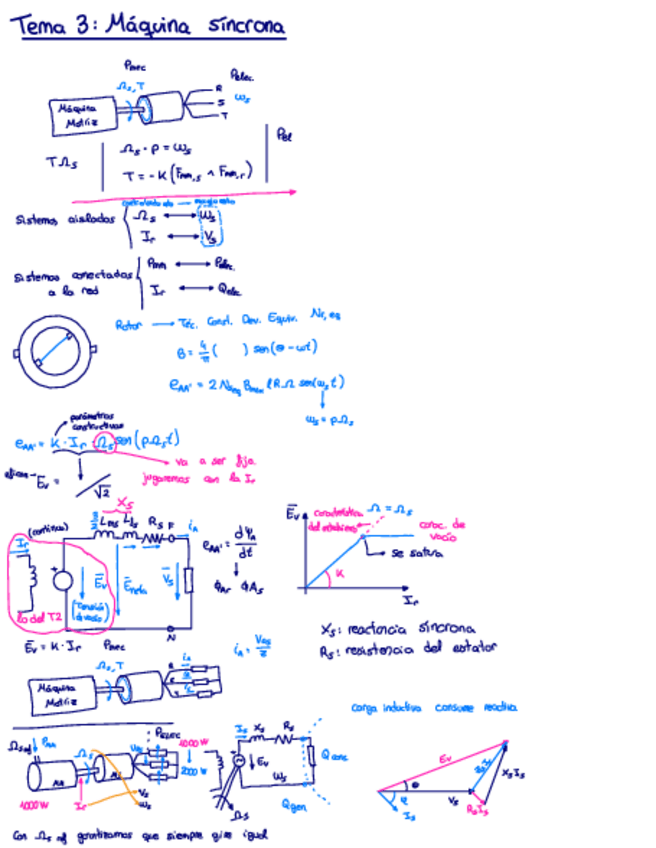 Tema 3: Máquina síncrona
Pmec
Ωs, T
Pelec.
ωs
R
S
T
Máquina
Motriz
TΩs
Ωs · p = ωs
T = -K (Fmm,s ∧ Fmm,r)
Pel
Sistemas aislados
Ωs ⟷ ωs
Ir ⟷ Vs
Sistemas conectados
a la red
Pmm ⟷ Pelec.
Ir ⟷ Qelec
Rotor → Téc. Const. Dev. Equiv. Nr, eq
B = 4/π ( ) sen(θ - ωt)
eAA' = 2 Ns,eq Bmax l R Ω sen(ωs t)
ωs = pΩs
parámetros
constructivos
eAA' = K · Ir · Ωs sen(pΩs t)
va a ser fija.
jugaremos con la Ir
Ev =
/√2
Xs
(continua)
Ir
Lms Lls Rs F
iA
eAA' = dΨA/dt
Ev
(Tensión
de vacío)
Vs
lo del T2
N
Ev = K · Ir
Ev
característica
del entrehierro
Ω = Ωs
carac. de
vacío
se satura
K
Ir
Xs: reactancia síncrona
Rs: resistencia del estator
Pmec
Ωs, T
Máquina
Motriz
R
S
T
carga inductiva consume reactiva
Ωs ref
PAA
Ωs
Pelec
1000 W
2000 W
AA
1000W
Ir
Vs
ωs
Is Xs Rs
Ev
ωs
Qcons
Qgen
Ωs
Ev
Xs Is
Rs Is
Vs
θ
φ
Is
Con Ωs ref garantizamos que siempre gire igual